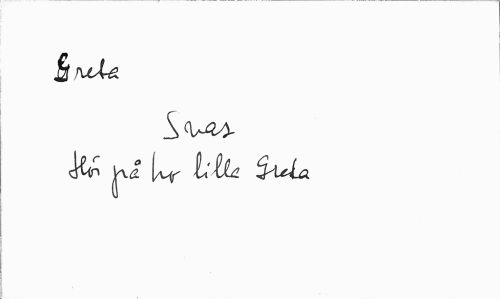 Greta
Snas
Hör på ho lilla Greta